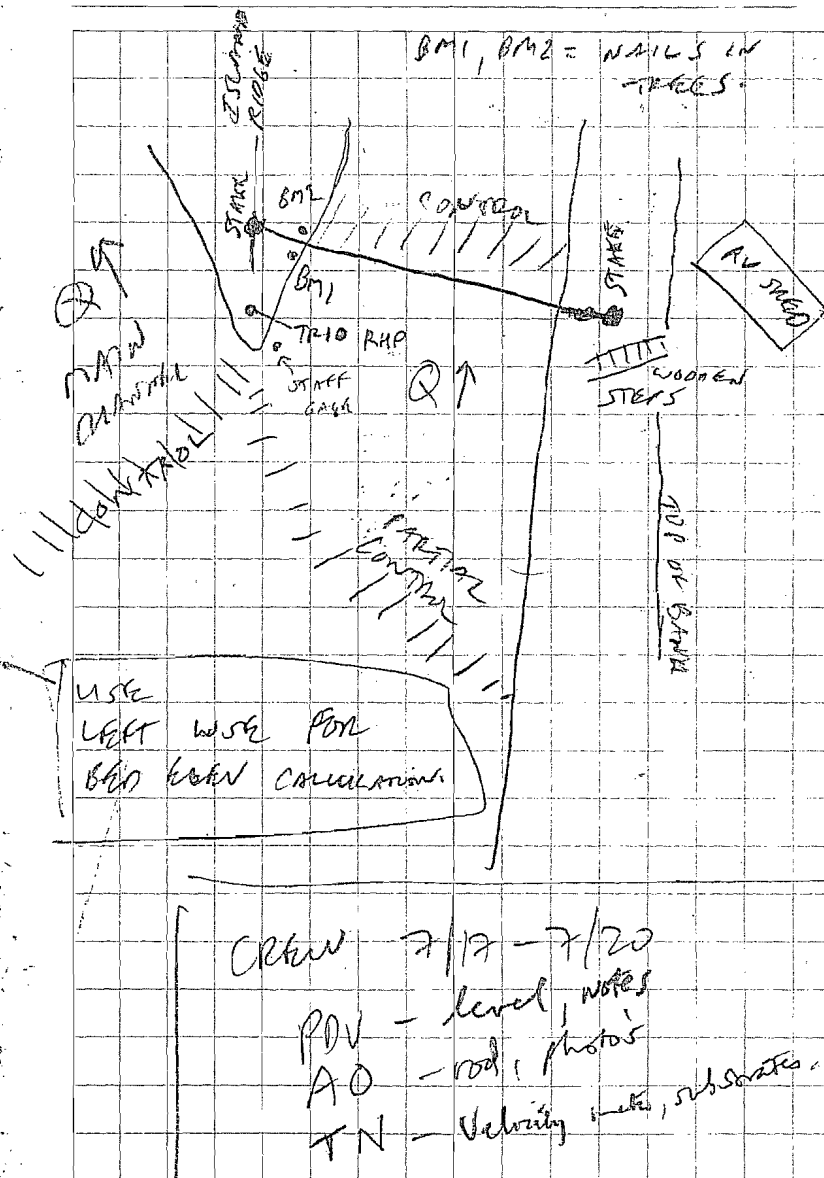 BM1, BM2 = NAILS IN
TREES.
ISLAND
RIDGE
STAKE
BM2
CONTROL
BM1
STAKE
Q ↑
MAIN
CHANNEL
TR10 RHP
STAFF
GAGE
Q ↑
WOODEN
STEPS
CONTROL
PARTIAL
CONTROL
TOP OF BANK
USE
LEFT WSE FOR
BED ELEV CALCULATIONS.
CREW 7/17 - 7/20
PDV - level, notes
AO - rod, photo's
TN - Velocity meter, substrates.